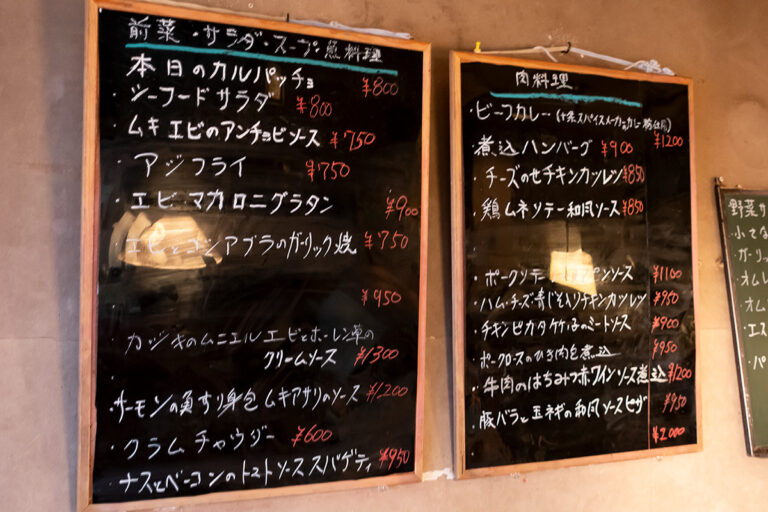 前菜・サラダ・スープ・魚料理
本日のカルパッチョ ¥800
・シーフードサラダ ¥800
ムキエビのアンチョビソース ¥750
・アジフライ ¥750
・エビマカロニグラタン ¥900
・エビとゴシアブラのガーリック焼 ¥750
¥950
・カジキのムニエル エビとホーレン草の
クリームソース ¥1300
・サーモンの魚すり身包 ムキアサリのソース ¥1,200
・クラムチャウダー ¥600
・ナスとベーコンのトマトソーススパゲティ ¥950
肉料理
・ビーフカレー ¥1200
・煮込ハンバーグ ¥900
・チーズのせチキンカツレツ ¥850
・鶏ムネソテー和風ソース ¥850
・ポークソテー ソース ¥1100
・ハム、チーズ、青じそ入りチキンカツレツ ¥950
・チキンピカタ ミートソース ¥900
・ポークロースのひき肉包煮込 ¥950
・牛肉のはちみつ赤ワインソース煮込 ¥1200
・豚バラと玉ネギの和風ソースピザ ¥950
¥2,000
野菜サ
・小さな
・ガーリッ
・オムレ
・オム
・エス
・パ